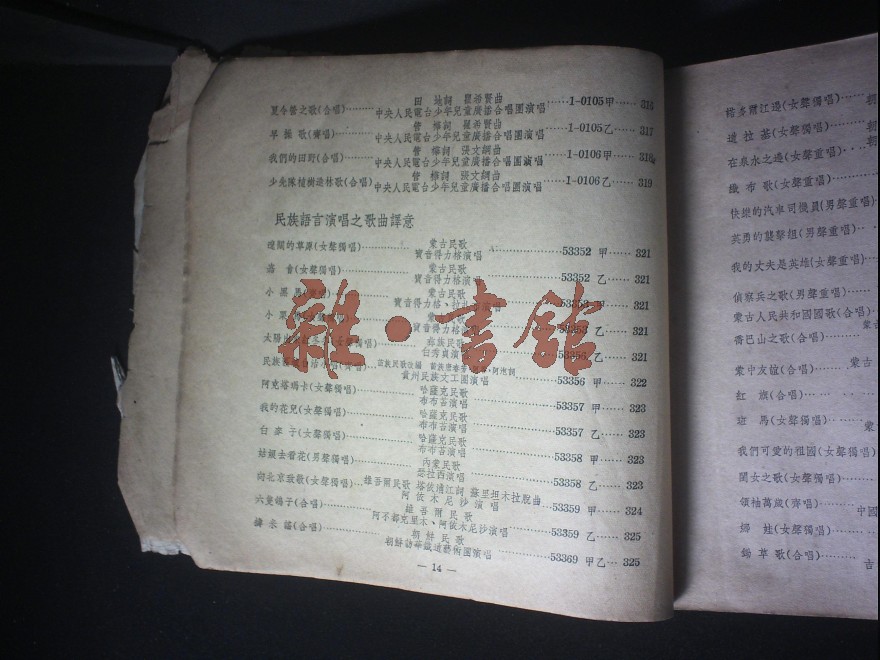 田 地詞 瞿希賢曲
夏令營之歌(合唱)………中央人民電台少年兒童廣播合唱團演唱……1-0105甲…… 316
管 樺詞 瞿希賢曲
早 操 歌(齊唱)………中央人民電台少年兒童廣播合唱團演唱……1-0105乙…… 317
管 樺詞 張文綱曲
我們的田野(合唱)………中央人民電台少年兒童廣播合唱團演唱……1-0106甲…… 318
管 樺詞 張文綱曲
少先隊植樹造林歌(合唱)…中央人民電台少年兒童廣播合唱團演唱……1-0106乙…… 319
民族語言演唱之歌曲譯意
蒙古民歌
遼闊的草原(女聲獨唱)………寶音得力格演唱………53352 甲…… 321
蒙古民歌
會(女聲獨唱)………寶音得力格演唱………53352 乙…… 321
小 黑 馬
寶音得力格 53353 甲…… 321
小
寶音得力格 53353 乙…… 321
彝族民歌
太陽
白秀貞演唱 53356 乙…… 321
民族
貴州民族文工團演唱………53356 甲…… 322
哈薩克民歌
阿克塔瑪卡(女聲獨唱)………布布茖演唱………53357 甲…… 323
哈薩克民歌
我的花兒(女聲獨唱)………布布茖演唱………53357 乙…… 323
哈薩克民歌
白 麥 子(女聲獨唱)………布布茖演唱………53358 甲…… 323
內蒙民歌
姑娘去看花(男聲獨唱)………瑟拉西演唱………53358 乙…… 323
維吾爾民歌 塔依浦江詞 蘇里坦木拉脫曲
向北京致敬(女聲獨唱)…阿依木尼沙演唱………53359 甲…… 324
維 吾 爾 民 歌
六隻鴿子(合唱)………阿不都克里木、阿依木尼沙演唱………53359 乙…… 325
朝 鮮 民 歌
搗 米 謠(合唱)………朝鮮訪華鐵道藝術團演唱………53369 甲乙… 325
— 14 —
雜·書館
諾多爾江邊(女聲獨唱)
道 拉 基(女聲獨唱)
在泉水之邊(女聲重唱)
織 布 歌(女聲獨唱)
快樂的汽車司機員(男聲獨唱)
英勇的襲擊組(男聲獨唱)
我的丈夫是英雄(女聲重唱)
偵察兵之歌(男聲重唱)
蒙古人民共和國國歌(合唱)
喬巴山之歌(合唱)
蒙中友誼(合唱) 蒙古
紅 旗(合唱)
斑 馬(女聲獨唱)
我們可愛的祖國(女聲獨唱)
閨女之歌(女聲獨唱)
領袖萬歲(齊唱) 中國
婦 娃(女聲獨唱)
鋤 草 歌(合唱)